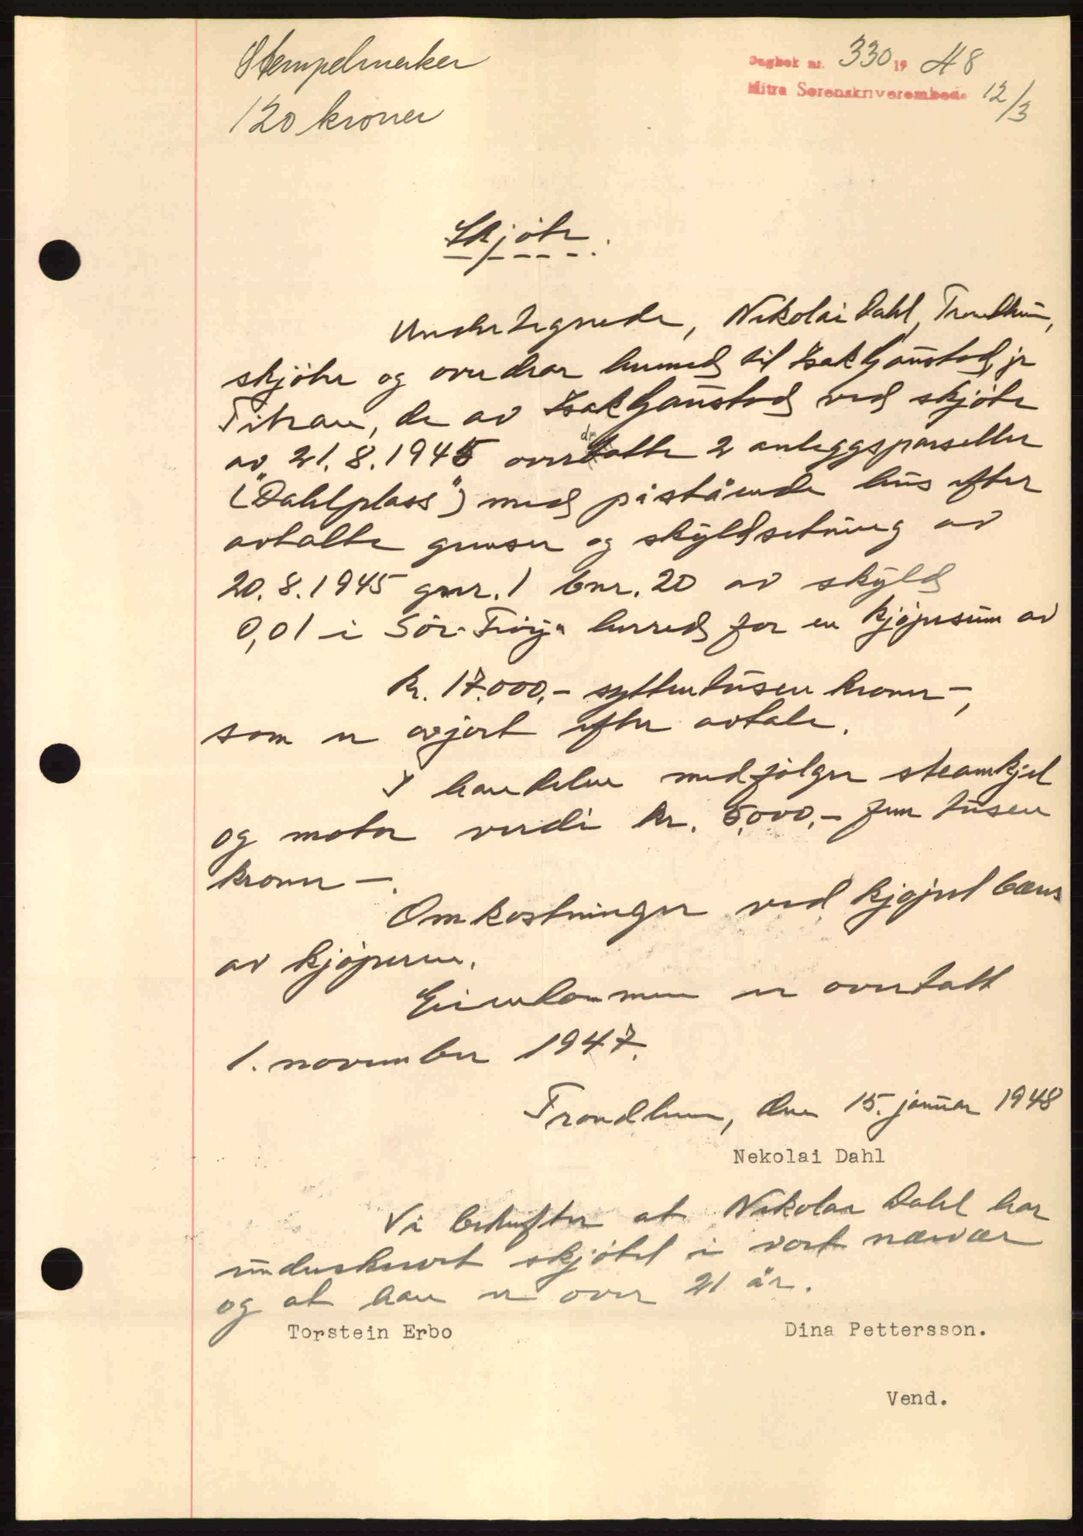 Stempelmerker
120 kroner
Dagbok nr. 330 19 48
Hitra Sorenskriverembede 12/3
Skjøte.
Undertegnede, Nikolai Dahl, Trondheim,
skjøter og overdrar herved til Isak Gaustad jr
Titran, de av Isak Gaustad ved skjøte
av 21.8.1945 overdratte 2 anleggsparseller
("Dahlplass") med påstående hus efter
avtalte grenser og skyldsetning av
20.8.1945 gnr. 1 bnr. 20 av skyld
0,01 i Sør-Frøya herred for en kjøpesum av
kr. 17.000,- sytten tusen kroner -,
som er avgjort efter avtale.
I handelen medfølger steamkjel
og motor verdi kr. 5.000,- fem tusen
kroner -.
Omkostninger ved kjøpet bæres
av kjøperen.
Eiendommen er overtatt
1. november 1947.
Trondheim, den 15. januar 1948
Nekolai Dahl
Vi bekrefter at Nikolai Dahl har
underskrevet skjøtet i vort nærvær
og at han er over 21 år.
Torstein Erbo Dina Pettersson.
Vend.